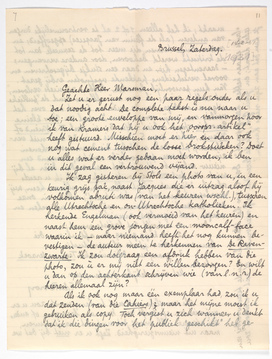 7
11
Brussel, Zaterdag.
Geachte Heer Marsman,
Zet u er gerust nog een paar regels onder als u
dat noodig acht. De complete tekst is nu naar u
toe; een groote enveloppe van mij, en vanmorgen hoor
ik van Kramers dat hij u ook het "vooren-artikel"
heeft gestuurd. Misschien moet er hier en daar ook
nog wat cement tusschen de losse brokstukken? Doet
u alles wat er verder gedaan moet worden, ik ben
in dit geval een verbogeven vriend.
Ik zag gisteren bij Stols een photo van u, in een
keurig grijs pak, naast Jacques die er uitzag alsof hij
volkomen afbruk was (van het keuren wellicht), tusschen
alle Utrechtsche en on-Utrechtsche katholieken. Ik
herkende Engelman (ook vermoeid van het keuren) en
naast hem een groot jonge met een monocale-face
waarin ik - maar niemand heeft het nog kunnen be-
vestigen - de auteur meen te herkennen van De Raven-
zwarte. Ik zou dolgraag een afdruk hebben van die
photo; zou u er mij niet een willen bezorgen? En wilt
u dan op den achterkant schrijven wie (van l. n. r.) de
heeren allemaal zijn?
Als u ook nog maar één exemplaar had, zou ik u
dat zenden (van die Cahiers); maar het mijne moet ik
gebruiken als copy. Toch vergist u zich wanneer u denkt
dat ik die dingen voor het publiek "geschikt" heb ge-